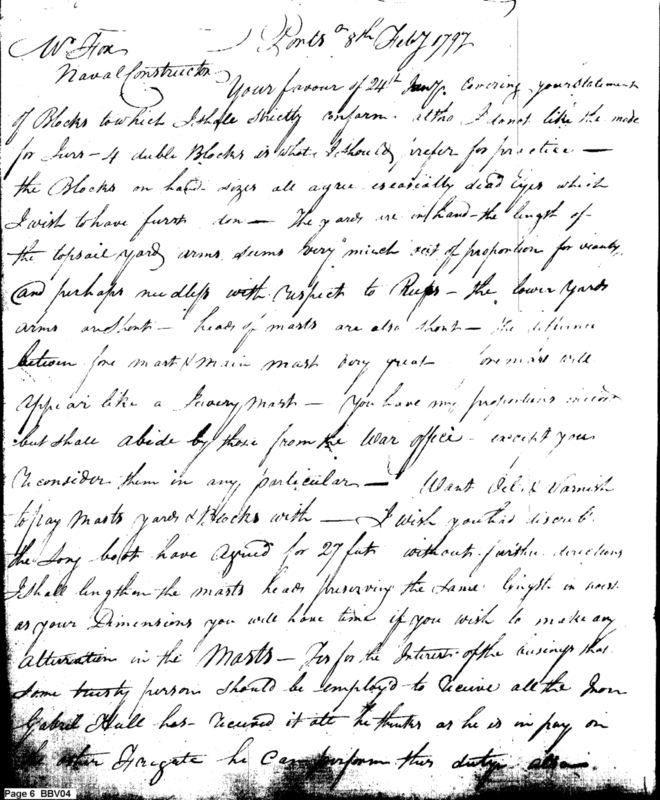 Mr Fox Ports o 8th Feby 1797
Naval Constructor
Your favour of 24th Jany covering your Statement
of Blocks to which I shall strictly conform altho I do not like the mode
for Jeers - 4 duble Blocks is what I should prefer for practice -
the Blocks on hand sizes all agree esecially dead Eyes which
I wish to have furst don - The yards are in hand - the lingth of
the topsail yard arms seems very much out of proportion for beauty
and perhaps needless with respect to Reefs - the lower yards
arms are Short - heads of masts are also short - The difference
between fore mast & main mast very great fore mast will
appear like a mast - You have my proportions
but shall abide by those from the War office - except you
reconsider them in any particular - Want Oil & Varnish
to pay Masts yards & Blocks with - I wish you had discrib
the long boat have Agreed for 27 feet without further directions
I shall lingthen the masts heads preserving the same lingth in
as your Dimensions you will have time if you wish to make any
alterration in the Masts - Tis for the Interest of the that
some trusty person should be employd to receive all the Iron
Gabriel Hall has received it all he thinks as he is in pay on
the other Frigate he can perform this duty also
Page 6 BBV04